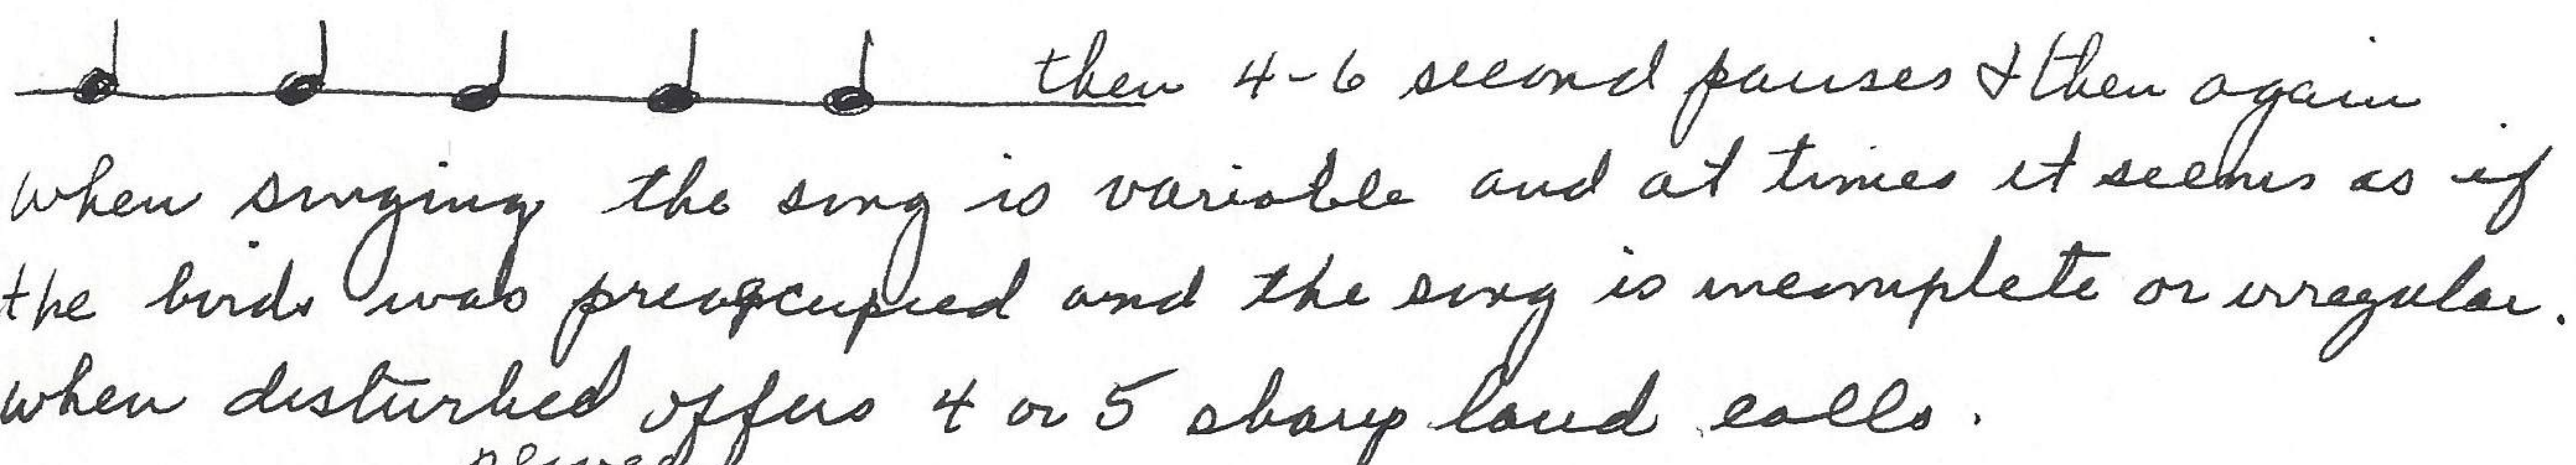 then 4-6 second pauses & then again
when singing the song is variable and at times it seems as if
the birds was preoccupied and the song is incomplete or irregular.
when disturbed offers 4 or 5 sharp loud calls.